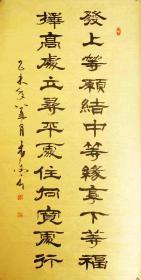 發上等願結中等緣享下等福
擇高處立尋平處住向寬處行
乙未年